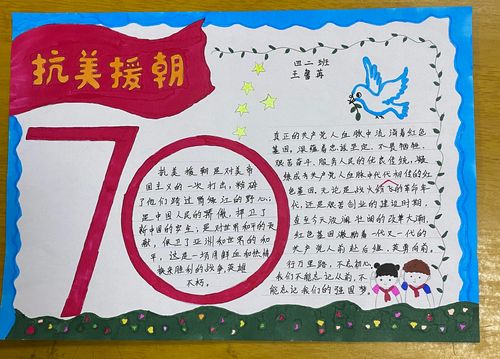 抗美援朝
四二班
王鲁苒
70
抗美援朝是对美帝
国主义的一次打击，粉碎
了他们跨过鸭绿江的野心，
是中国人民的骄傲，捍卫了
新中国的安全，是对世界和平的贡
献，保卫了亚洲和世界的和
平，这是一场用鲜血和热情
换来胜利的战争，英雄
不朽。
真正的共产党人血脉中流淌着红色
基因，深蕴着忠诚坚定、不畏牺牲、
艰苦奋斗、服务人民的优良传统，凝
炼成为共产党人血脉中代代相传的红
色基因。无论是战火纷飞的革命年
代，还是艰苦创业的建设时期，
直至今天波澜壮阔的改革大潮，
红色基因激励着一代又一代的
共产党人前赴后继，英勇向前。
行万里路，不忘初心，
我们不能忘记从前，不
能忘记我们的强国梦。